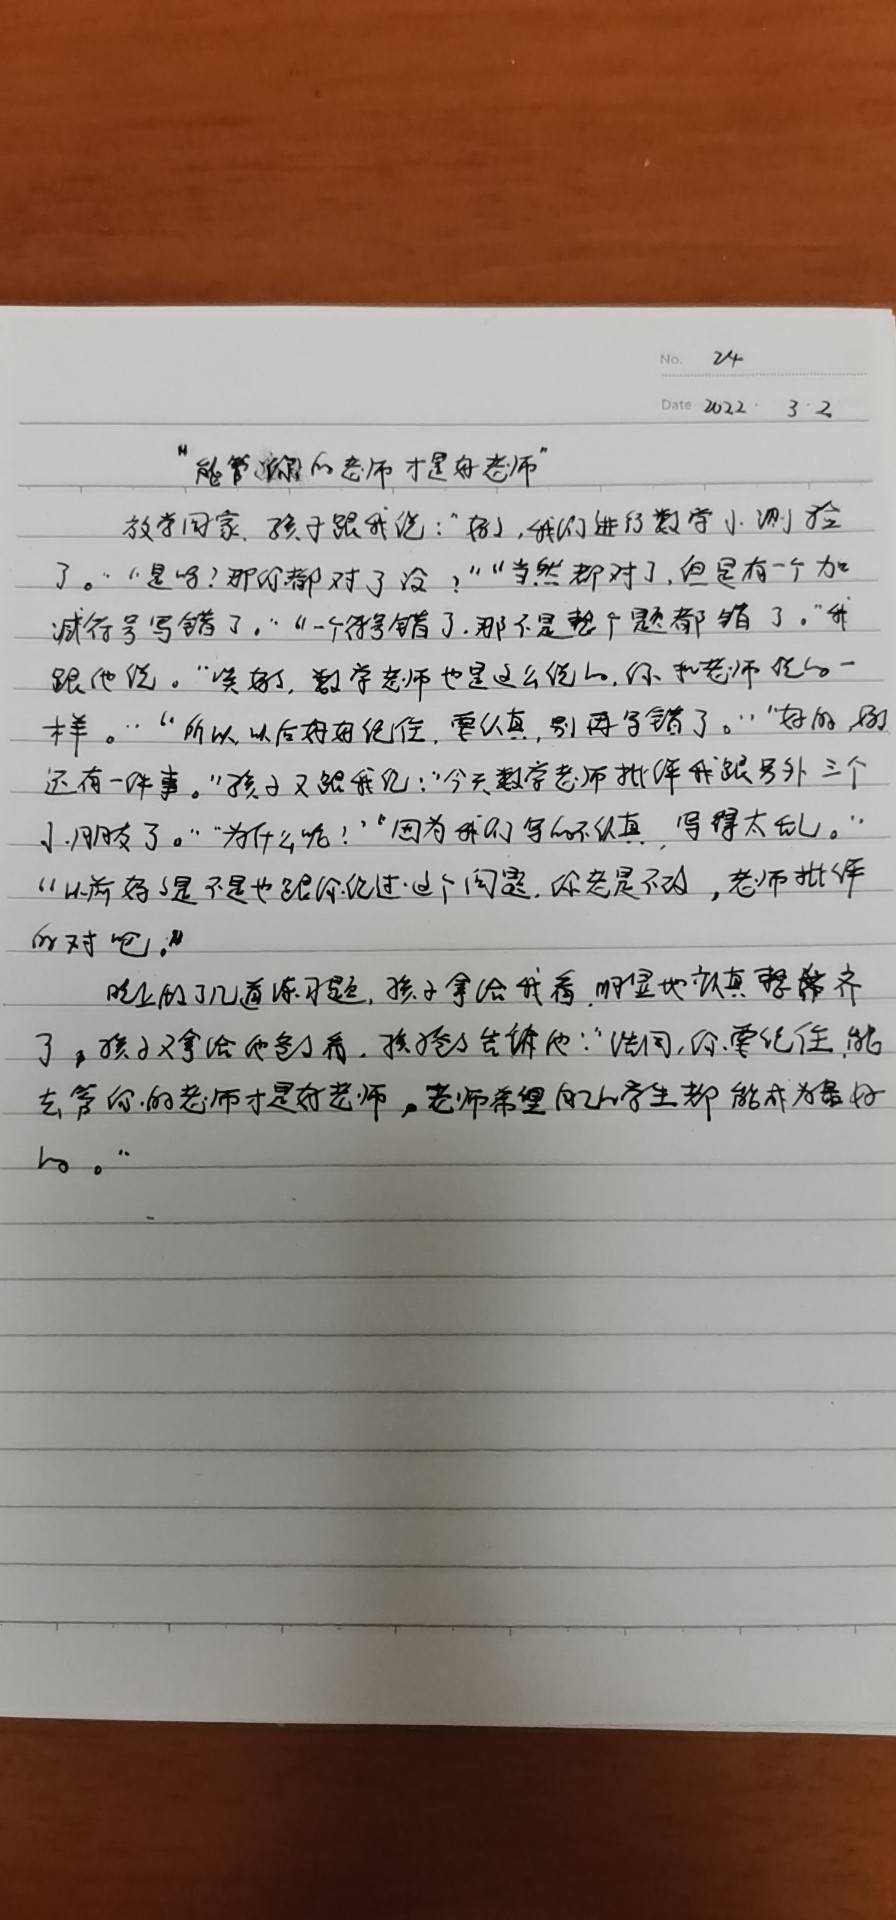 No. 24
Date 2022 . 3 . 2
“能管你的老师才是好老师”
放学回家，孩子跟我说：“妈妈，我们进行数学小测验
了。”“是吗？那你都对了没？”“当然都对了，但是有一个加
减符号写错了。”“一个符号错了，那不是整个题都错了。”我
跟他说。“妈妈，数学老师也是这么说的，你和老师说的一
样。”“所以，以后好好记住，要认真，别再写错了。”“好的，妈妈
还有一件事。”孩子又跟我说：“今天数学老师批评我跟另外三个
小朋友了。”“为什么呢？”“因为我们写的不认真，写得太乱。”
“以前妈妈是不是也跟你说过这个问题，你老是不改，老师批评
的对吧。”
晚上做了几道练习题，孩子拿给我看，明显地认真整齐
了，孩子又拿给他爸爸看，孩爸爸告诉他：“你要记住，能
去管你的老师才是好老师，老师希望自己的学生都能成为最好
的。”